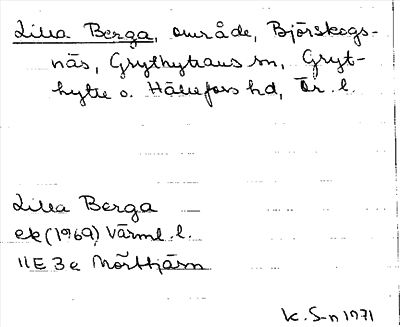 Lilla Berga, område, Björskogs-
näs, Grythyttans sn, Gryt-
hytte o. Hällefors hd, Ör. l.
Lilla Berga
ek (1969) Värml. l.
11E 3e Mörttjärn
K. S-n 1971